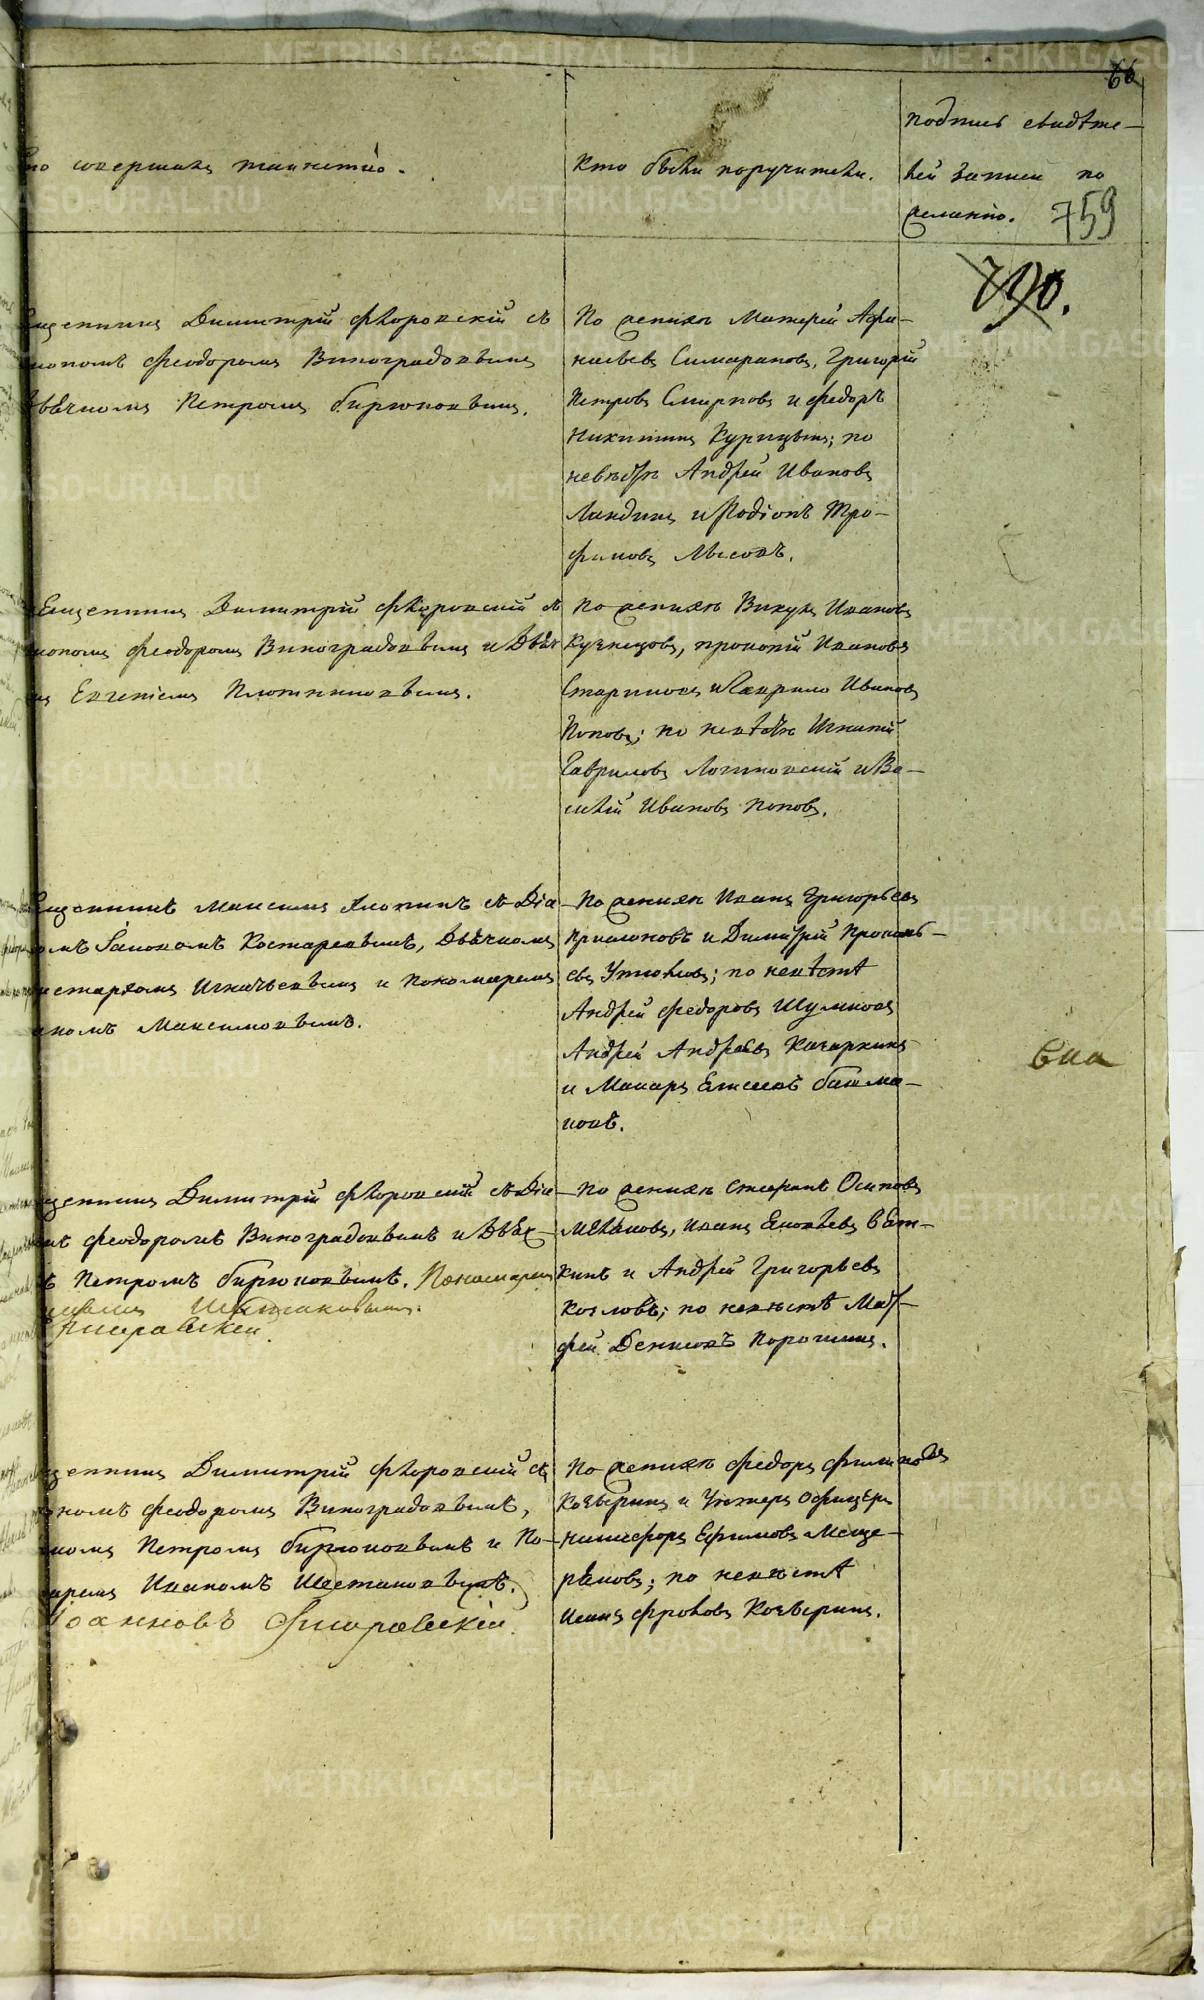 66
то совершалъ таинство.
Кто были поручители.
подпись свидѣте-
лей записи по
желанію.
759
790.
Священникъ Димитрій Флоровскій съ
Діакономъ Феодоромъ Виноградовымъ
Дьячкомъ Петромъ Бирюковымъ.
По женихѣ Матѳей Афа-
насьевъ Симарановъ, Григорій
Петровъ Смирновъ и Федоръ
Никитинъ Курицынъ; по
невѣстѣ Андрей Ивановъ
Ландинъ и Родіонъ Тро-
фимовъ Лысовъ.
Священникъ Димитрій Флоровскій съ
Феодоромъ Виноградовымъ и Дьяч
Евгеніемъ Плотниковымъ.
По женихѣ Викулъ Ивановъ
Кузнецовъ, Прокопій Ивановъ
Стариковъ и Гаврило Ивановъ
Поповъ; по невѣстѣ Игнатій
Гавриловъ Логиновскій и Ва-
силій Ивановъ Поповъ.
Священникъ Максимъ Хлопинъ съ Діа
Іаковомъ Костаревымъ, Дьячкомъ
Аристархомъ Игнатьевымъ и Пономаремъ
Максимовымъ.
По женихѣ Иванъ Григорьевъ
и Димитрій Прокопь-
евъ Утюповъ; по невѣстѣ
Андрей Федоровъ Шумковъ
Андрей Андреевъ Качаркинъ
и Макаръ Елисеевъ Башма-
ковъ.
Священникъ Димитрій Флоровскій съ Діа
Феодоромъ Виноградовымъ и Дьяч-
Петромъ Бирюковымъ. Пономарем
Шестаковымъ.
По женихѣ Стефанъ Осиповъ
Меньковъ, Иванъ Яковлевъ Вят-
кинъ и Андрей Григорьевъ
Козловъ; по невѣстѣ Мат-
фей Денисовъ Порошинъ.
Священникъ Димитрій Флоровскій съ
Феодоромъ Виноградовымъ,
Петромъ Бирюковымъ и По-
Иваномъ Шестаковымъ.
Іоанновъ
По женихѣ Федоръ Филиповъ
Козыринъ и Унтеръ Офицеръ
Никифоръ Ефимовъ Меще-
ряковъ; по невѣстѣ
Фроловъ Козыринъ.
METRIKI.GASO-URAL.RU